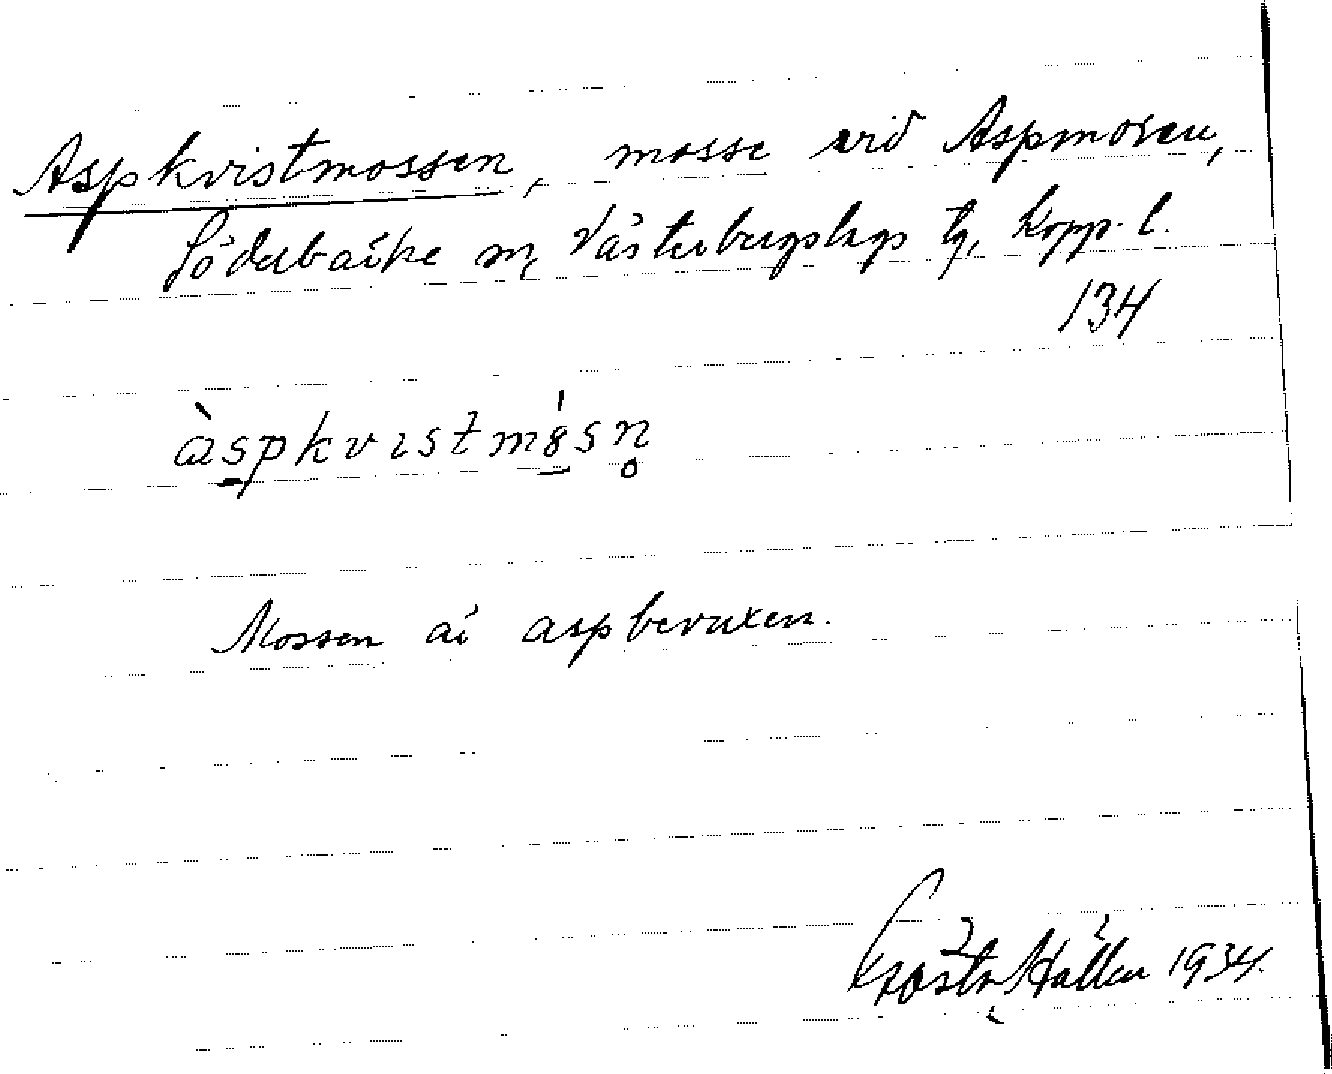 Aspkvistmossen, mosse vid Aspmoren,
Söderbärke sn, Västerbergslags tg, Kopp. l.
134
àspkvıstmósn̥
Mossen är aspbevuxen.
Gösta Hallén 1934.